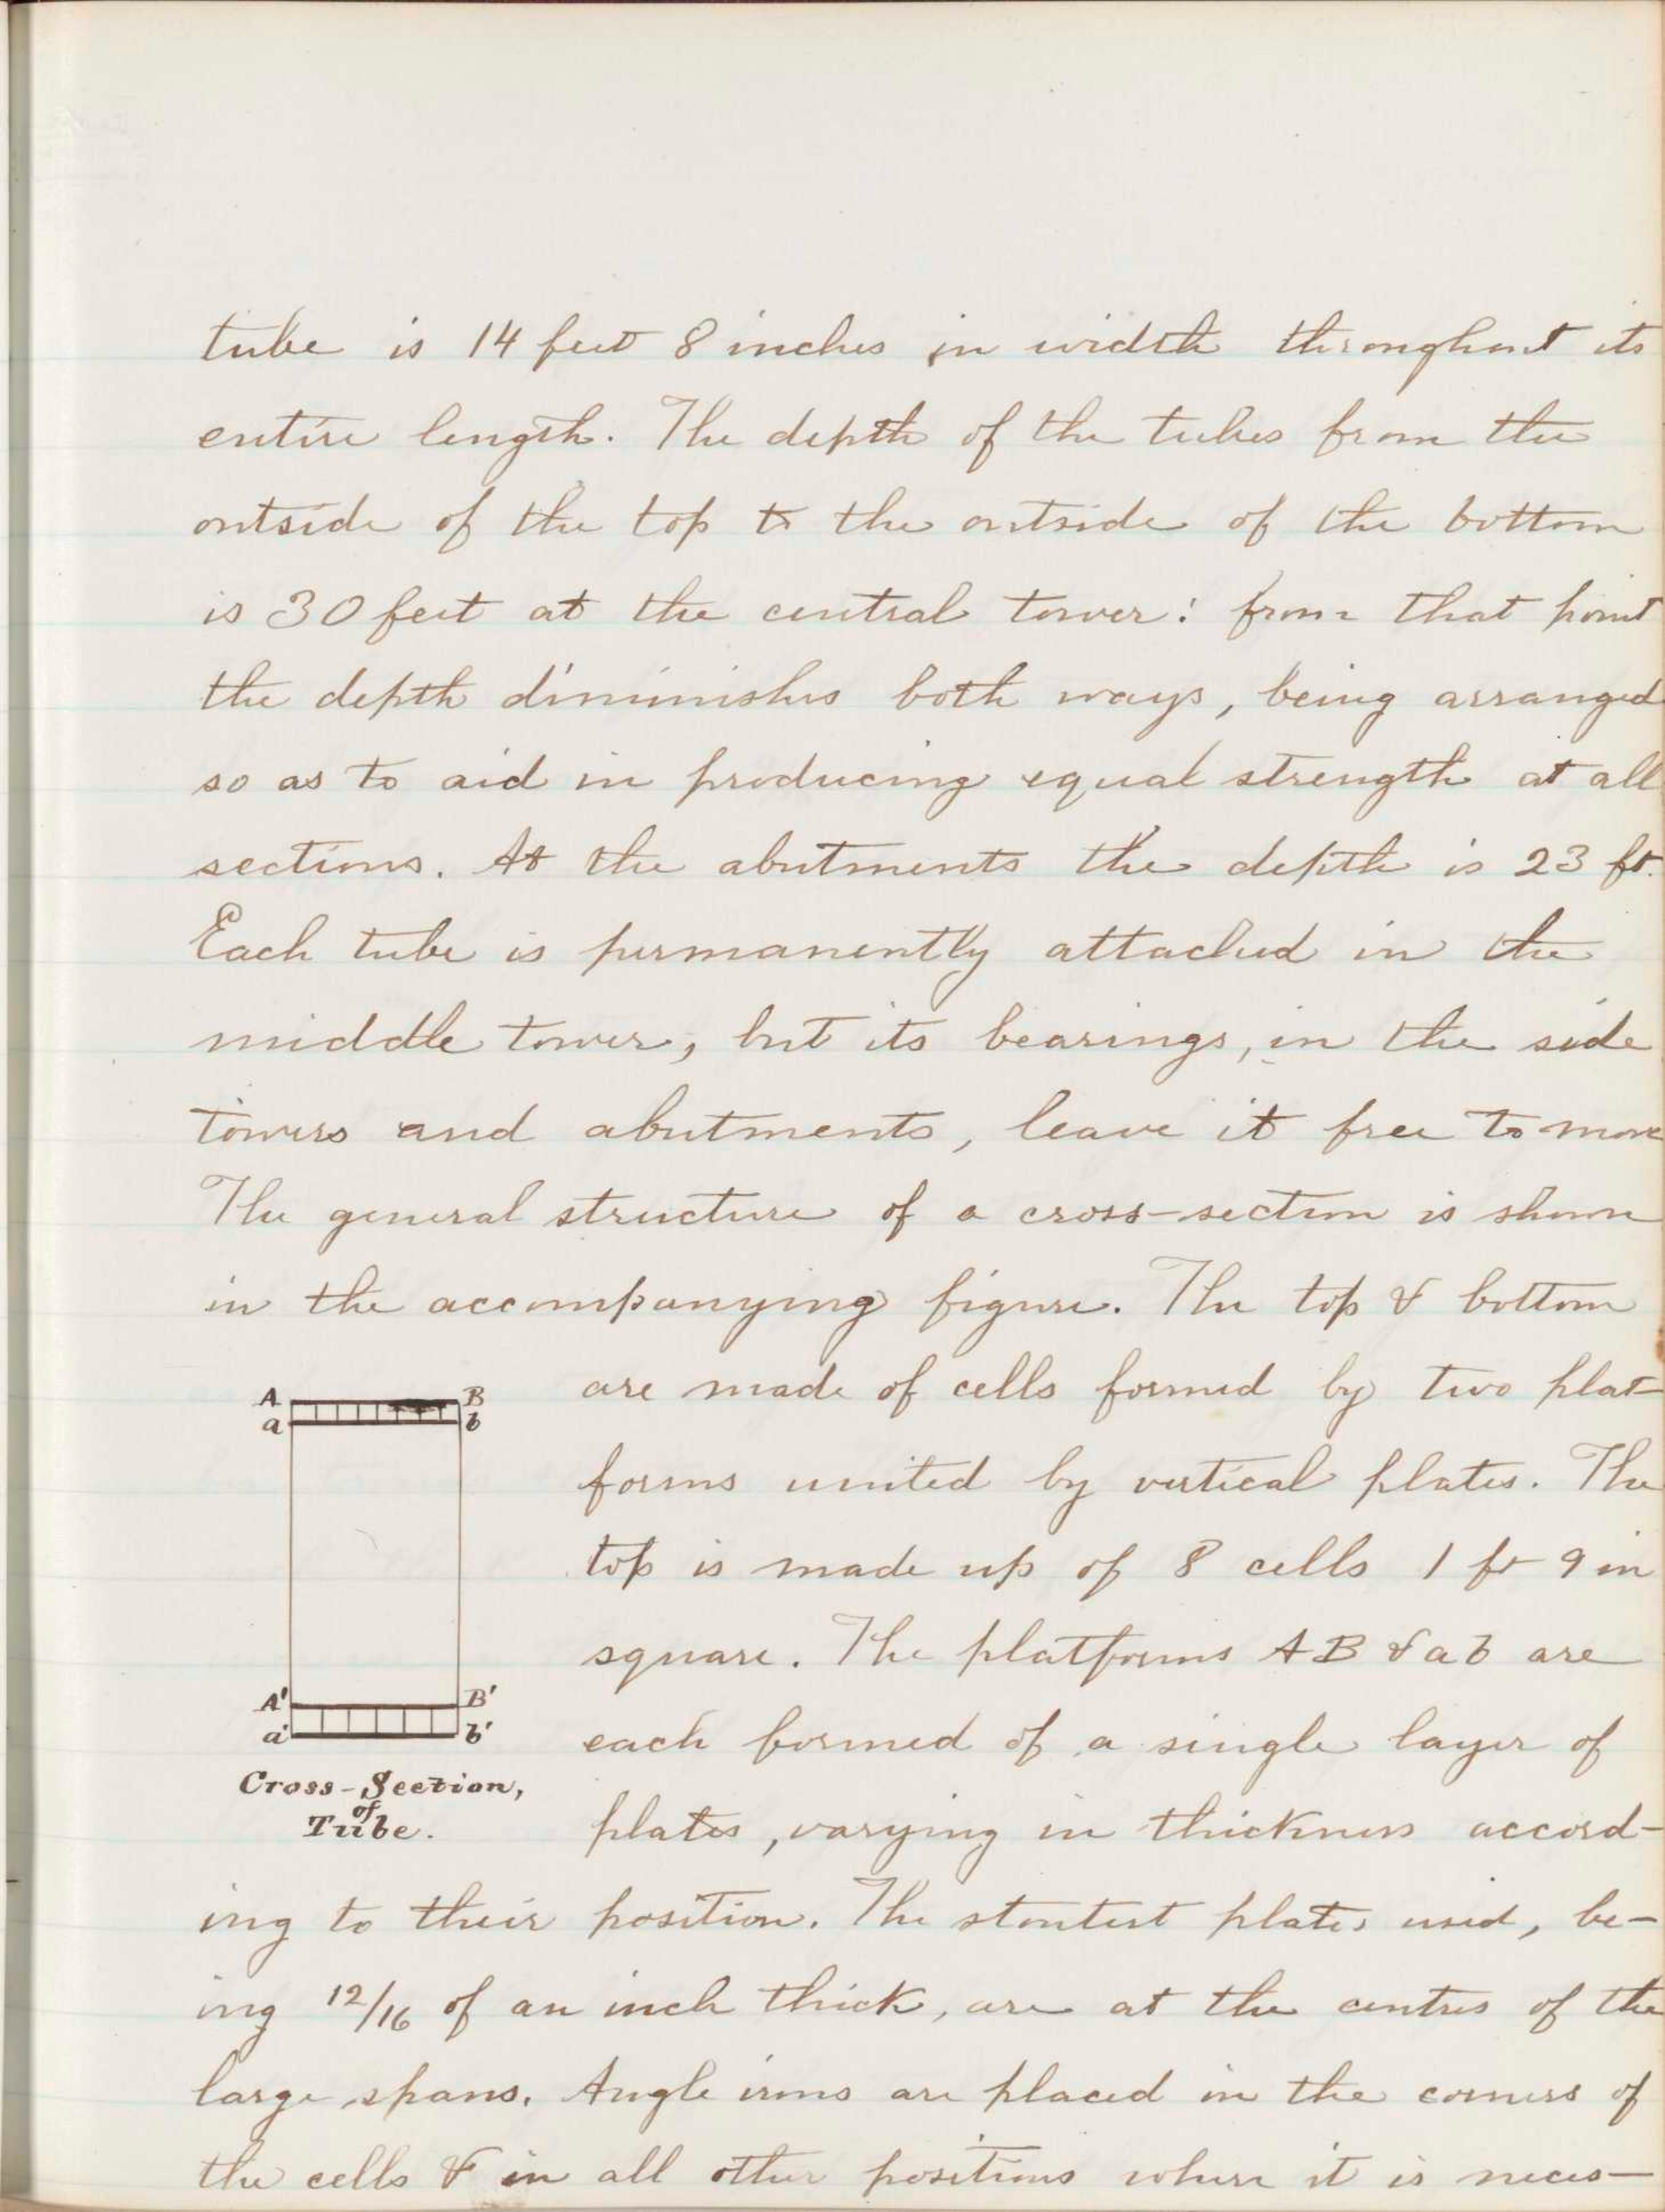 tube is 14 feet 8 inches in width throughout its
entire length. The depth of the tubes from the
outside of the top to the outside of the bottom
is 30 feet at the central tower: from that point
the depth diminishes both ways, being arranged
so as to aid in producing equal strength at all
sections. At the abutments the depth is 23 ft.
Each tube is permanently attached in the
middle tower, but its bearings, in the side
towers and abutments, leave it free to move
The general structure of a cross-section is shown
in the accompanying figure. The top & bottom
are made of cells formed by two plat-
forms united by vertical plates. The
top is made up of 8 cells 1 ft 9 in
square. The platforms AB & ab are
each formed of a single layer of
plates, varying in thickness accord-
A B
a b
A' B'
a' b'
Cross-Section,
of
Tube.
ing to their position. The stoutest plates used, be-
ing 12/16 of an inch thick, are at the centres of the
large spans. Angle irons are placed in the corners of
the cells & in all other positions where it is neces-